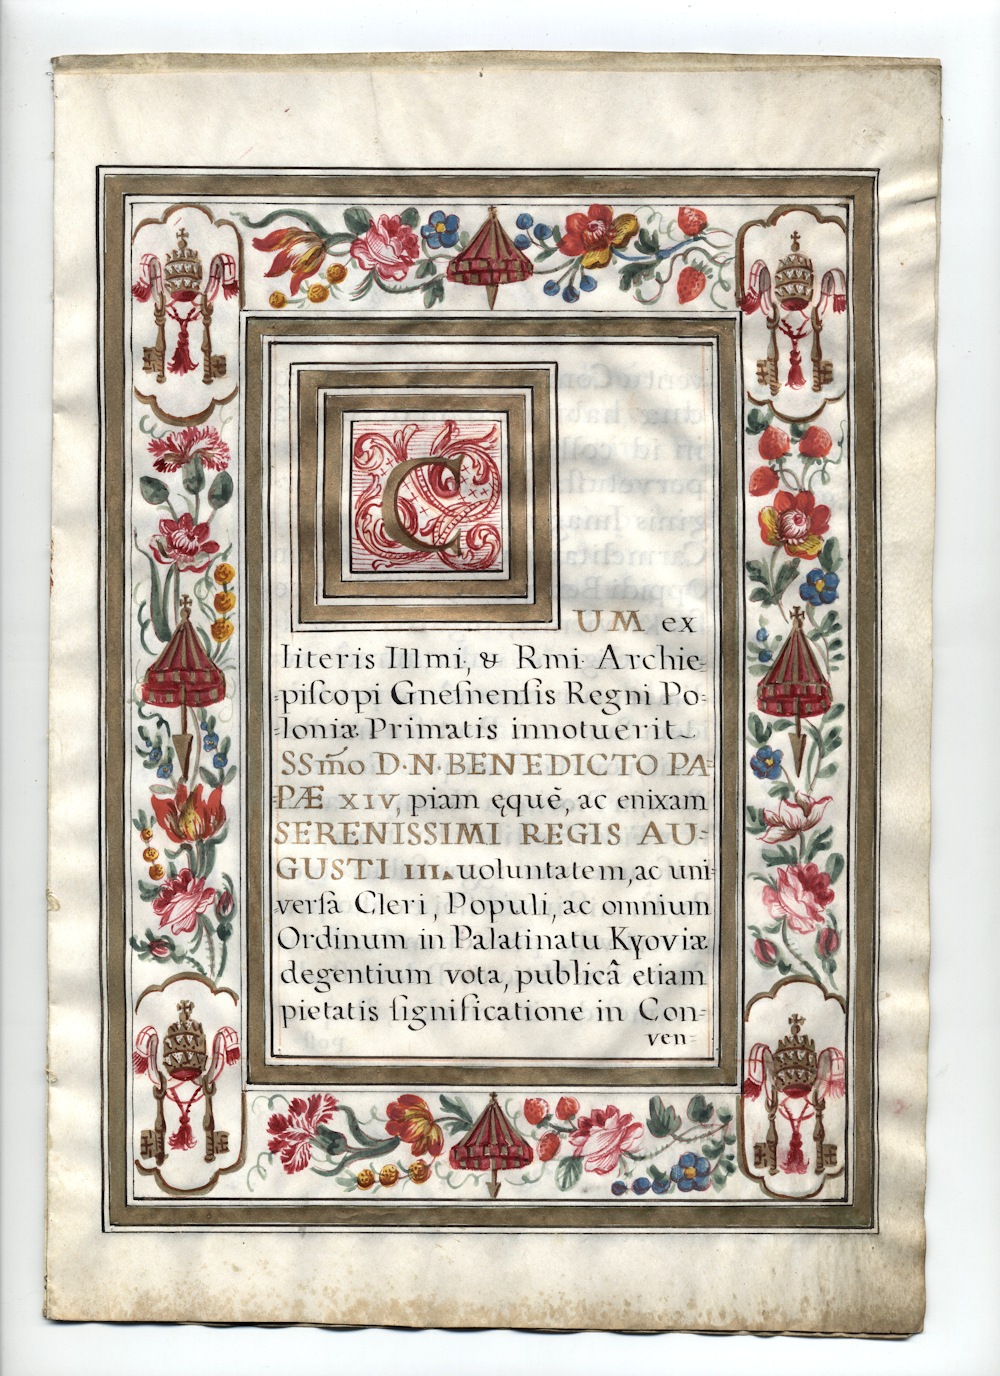 CUM ex
literis Illmi, & Rmi Archie-
piſcopi Gneſnenſis Regni Po-
loniæ Primatis innotuerit
SSm̃o D·N·BENEDICTO PA-
PÆ XIV, piam ęquē, ac enixam
SERENISSIMI REGIS AU-
GUSTI III. uoluntatem, ac uni-
verſà Cleri, Populi, ac omnium
Ordinum in Palatinatu Kyoviæ
degentium vota, publicâ etiam
pietatis ſignificatione in Con-
ven-